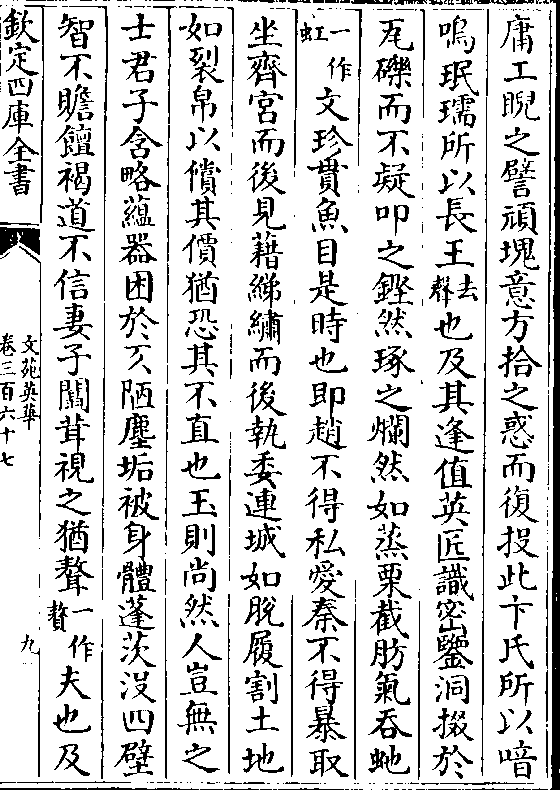 庸工睨之譬頑塊意方拾之惑而復投此卞氏所以喑
嗚珉瓀所以長王去聲也及其逢值英匠識密鑒洞掇於
瓦礫而不疑叩之鏗然琢之爛然如蒸栗截肪氣吞虵
一作虹文珍貫魚目是時也即趙不得私愛秦不得暴取
坐齊宮而後見藉綈繡而後執委連城如脫履割土地
如裂帛以償其價猶恐其不直也玉則尚然人豈無之
士君子含略蘊器困於仄陋塵垢被身體蓬茨沒四壁
智不贍饘褐道不信妻子闒茸視之猶聱一作贅夫也及
欽定四庫全書
文苑英華
卷三百六十七
九